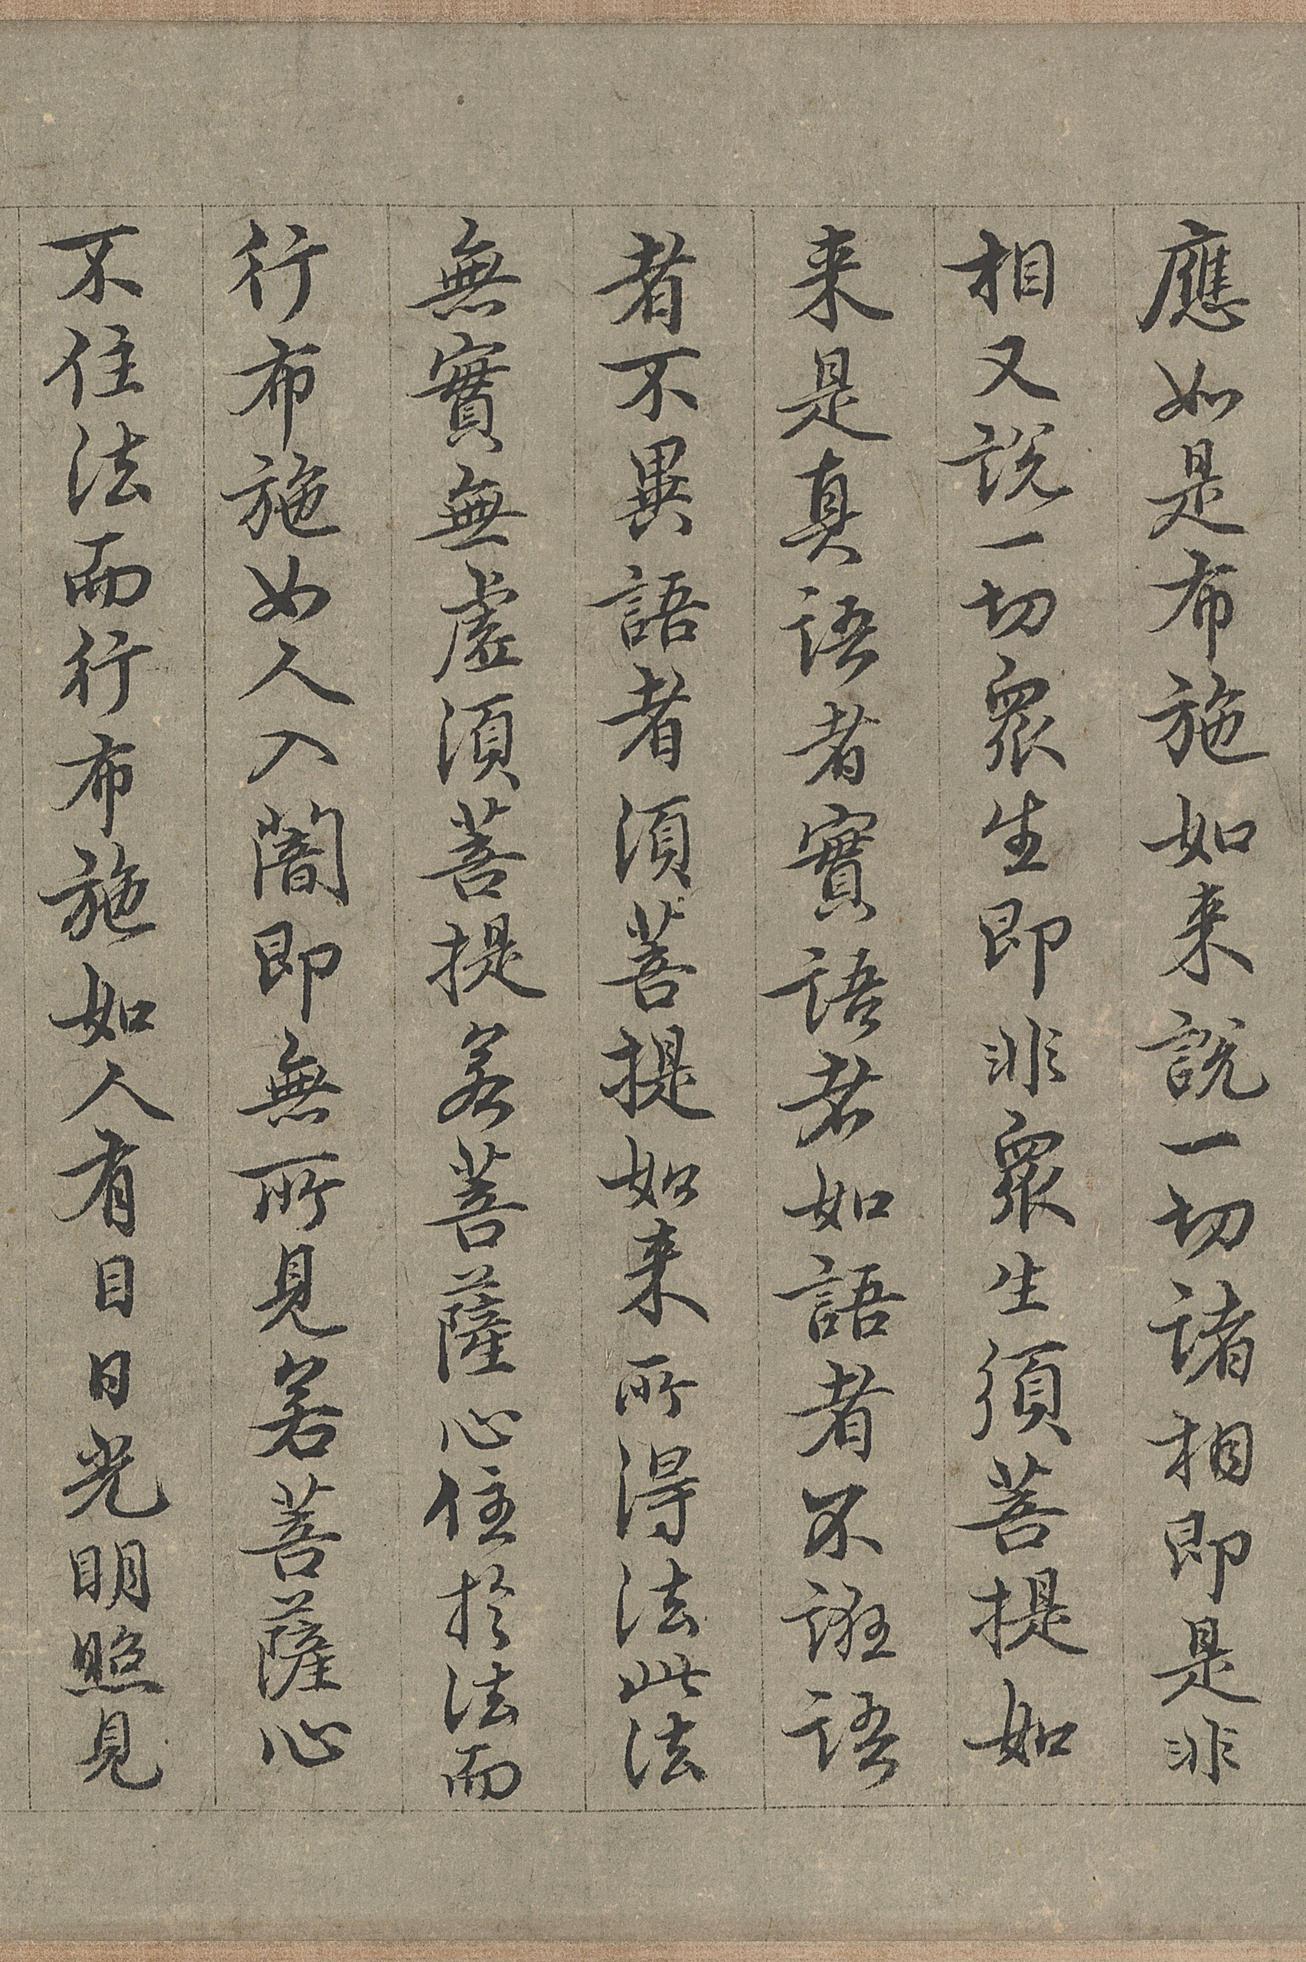 應如是布施如来說一切諸相即是非
相又說一切衆生即非衆生須菩提如
来是真語者實語者如語者不誑語
者不異語者須菩提如来所得法此法
無實無虛須菩提若菩薩心住於法而
行布施如人入闇即無所見若菩薩心
不住法而行布施如人有目日光明照見